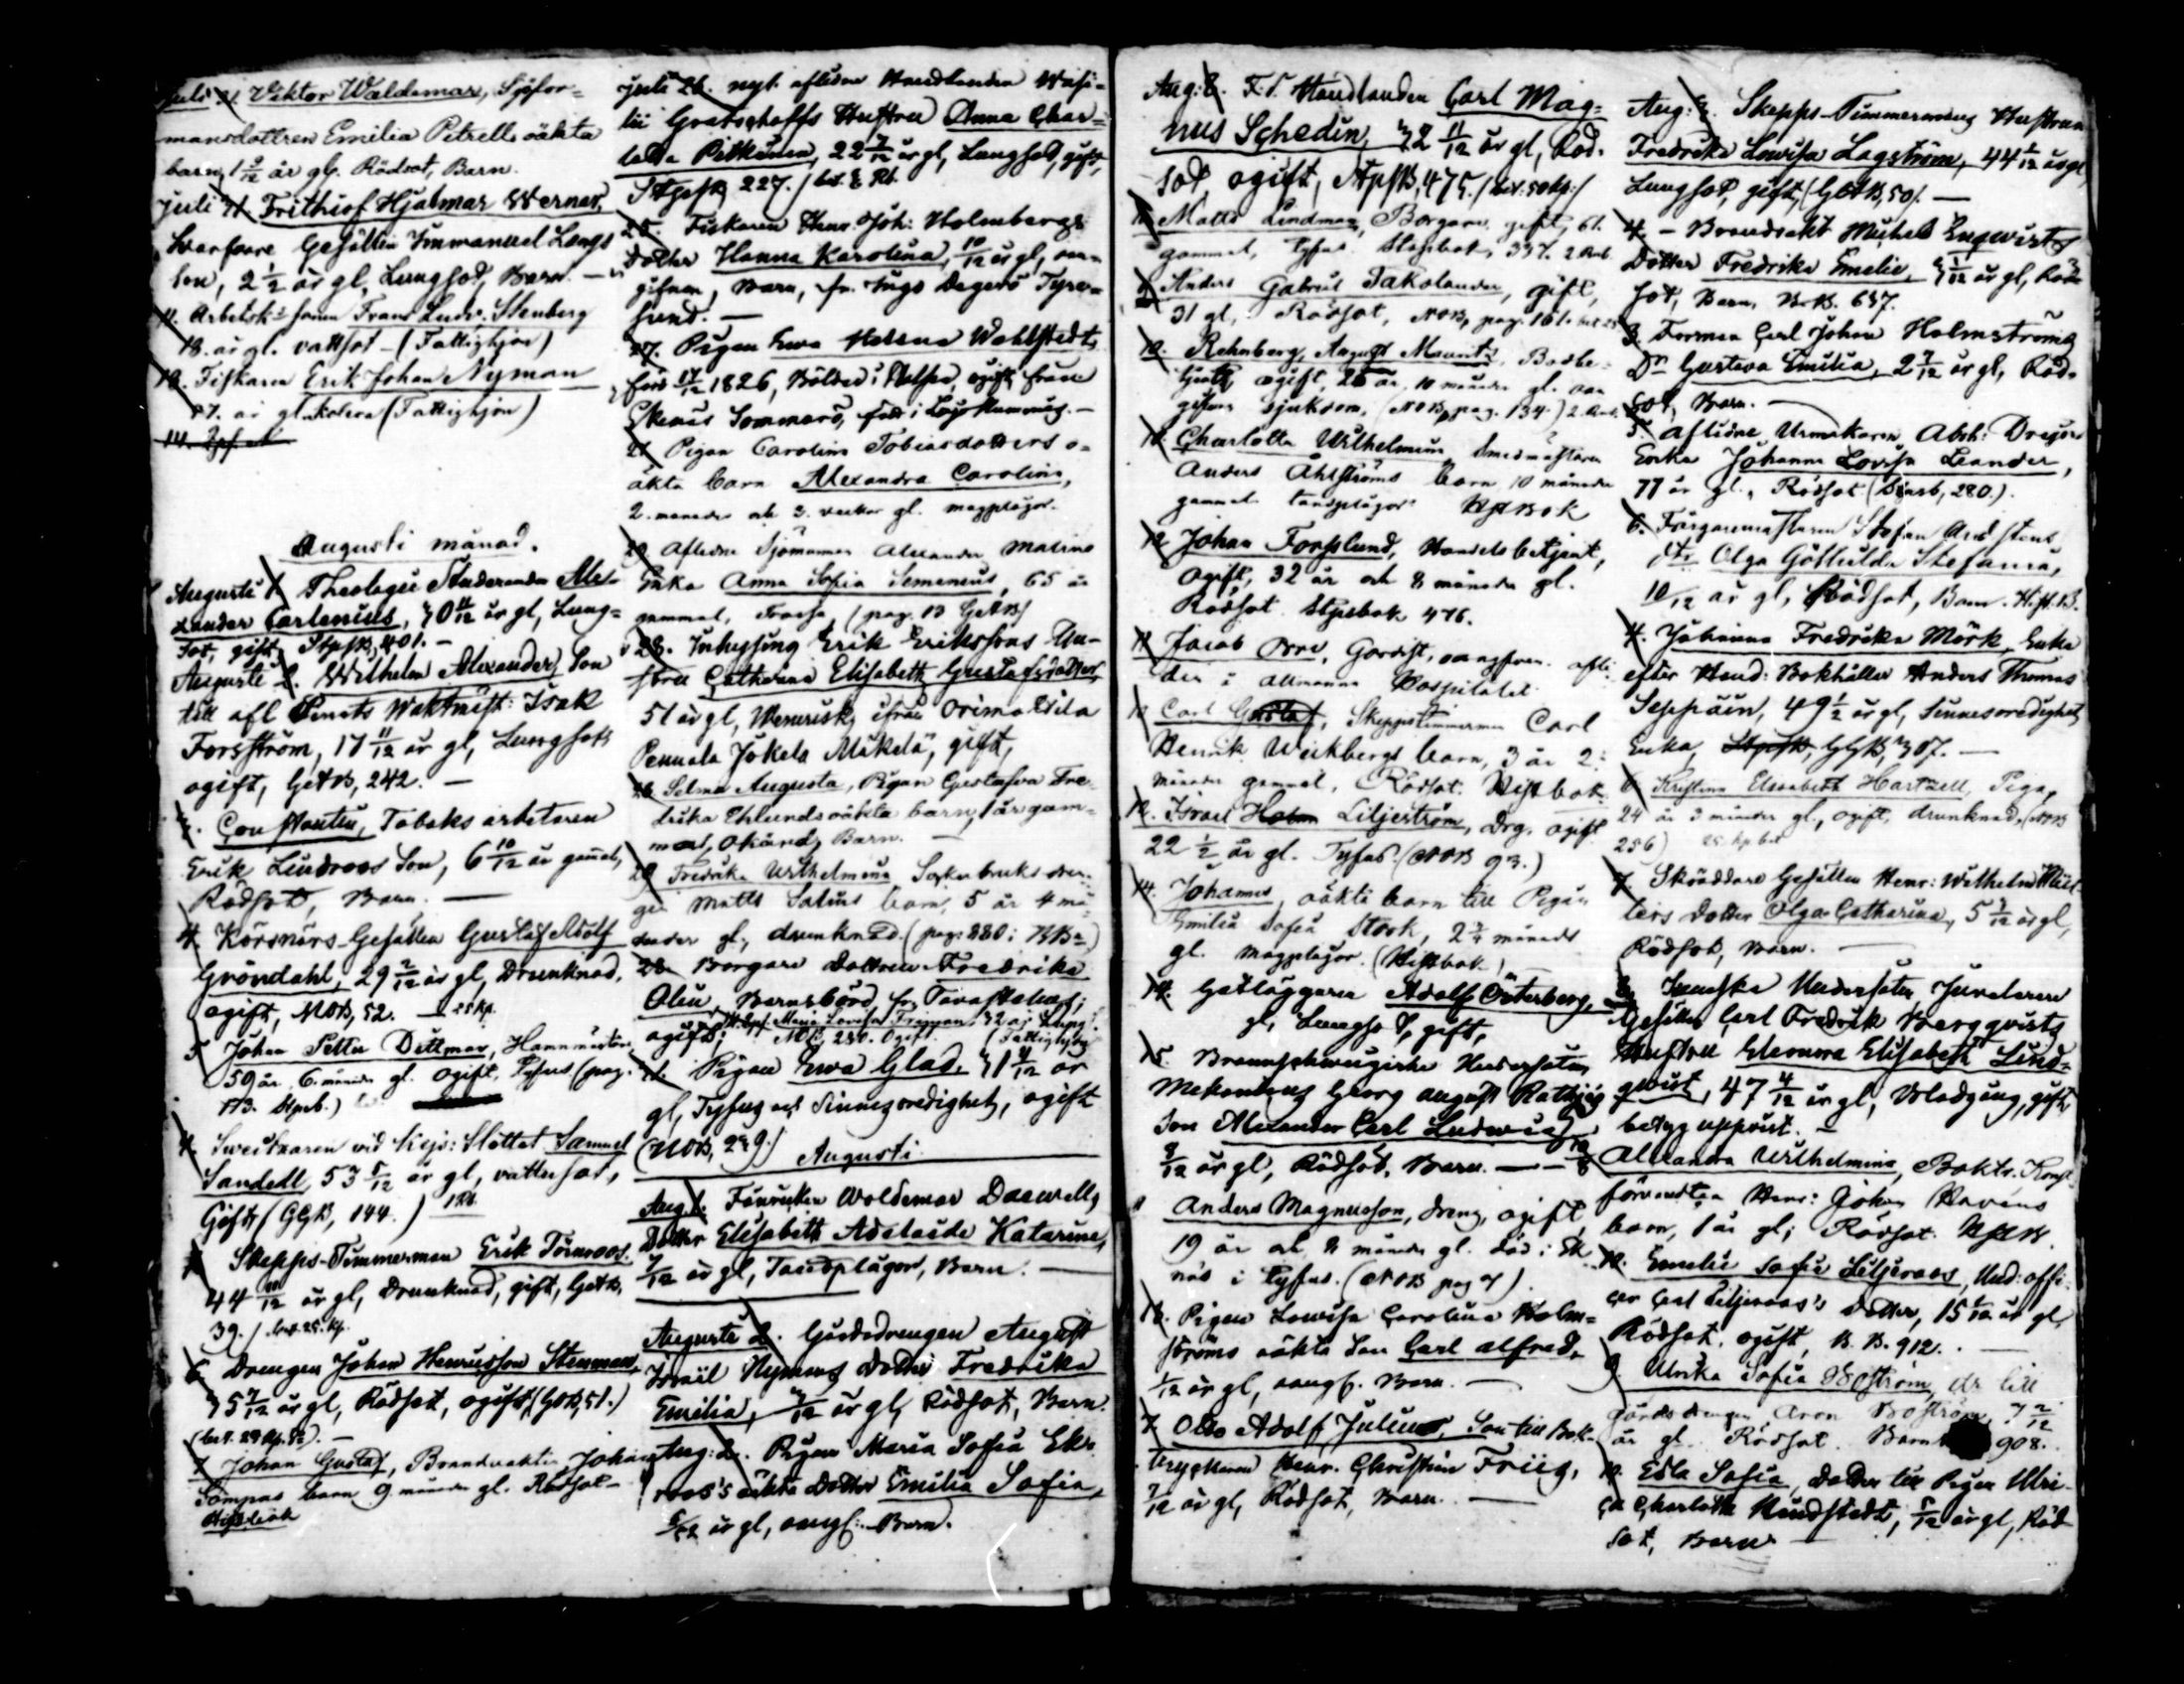 Juli 31. Viktor Waldemar, Sjöfor-
mansdottren Emilia Petrells oäkta
barn, 1 9/12 år gl. Rödsot, Barn.
Juli 31. Frithiof Hjalmar Werner,
Svarfvare Gesällen Immanuel Langs
Son, 2 1/2 år gl, Lungsot, Barn. —
11. Arbetsk: Frans Ludv. Stenberg
18. år gl. vattsot - (Fattighjon)
19. Fiskaren Erik Johan Nyman
57. år gl. kolera (Fattighjon)
14.
Augusti månad.
Augusti 1. Theologie Studeranden Alex-
ander Carlenius, 30 11/12 år gl, Lung-
sot, gift, StpsB, 401. —
Augusti 2. Wilhelm Alexander, Son
till afl Senats Waktmäst: Isak
Forsström, 17 11/12 år gl, Lungsot,
ogift, GetB, 242. —
3. Constantin, Tobaks arbetaren
Erik Lindroos Son, 6 10/12 år gamal,
Rödsot, Barn. —
4. Körsnärs-Gesällen Gustaf Adolf
Gröndahl, 29 2/12 år gl, Drunknad,
ogift, NOB, 52. — 25 kp.
5 Johan Petter Dittmar, Hammarsm.
59 år 6. månder gl. ogift, Tyfus (pag.
173. Stpsb.)
4. Sweitzaren vid Kejs: Slottet Samuel
Sandell, 53 5/12 år gl, vattusot,
Gift, (GGB, 144.) 1 Rb.
Skepps-Timmerman Erik Törnroos
44 10/12 år gl, Drunknad, gift, GetB,
39. / bet. 25. kp.
6. Drengen Johan Henriksson Stenman,
35 7/12 år gl, Rödsot, ogift, (GOB, 51.)
(bet. 29 kp. Sr). —
7 Johan Gustaf, Brandvakten Johan
Sompas barn 9 månder gl. Rödsot -
Hispbok
Juli 26. nyl. aflidne Handlanden Wasi-
lii Gratschoffs Hustru Anna Char-
lotta Petkina, 22 7/12 år gl, Lungsot, gift,
StpsB, 227. / bet. 2 Rb.
25. Fiskaren Henr. Joh: Holmbergs
Dotter Hanna Karolina, 10/12 år gl, oan-
gifven, Barn, fr. Inga Degerö Tyrö-
sund. —
27. Pigan Ewa Helena Wahlstedt,
född 17/12 1826, Bölder i Halsen, ogift, från
Ekenäs Sommarö,
27 Pigan Carolina Tobiasdotters o-
äkta barn Alexandra Carolina,
2. månader och 3. veckor gl. magplågor.
29. Aflidne Sjömannen Alexander Malins
Enka Anna Sofia Semenius, 65 år
gammal, Frossa, (pag. 13 GetB)
28. Inhysing Erik Erikssons Hu-
stru Catharina Elisabeth Gustafsdotter,
51 år gl, Wenerisk, ifrån Orimattila
Pennala Jokela Mäkelä, gift,
26 Selma Augusta, Pigan Gustafva Fre-
drika Ehlunds oäkta barn, 1 år gam-
mal, Okänd, Barn.
29 Fredrika Wilhelmina Sockerbruks dren-
gen Matts Salins barn, 5 år 4 må-
nader gl., drunknad. (pag: 880: BBn)
28. Borgare Dottren Fredrika
Olin, Barnsbörd, fr. Tavastehus,
ogift; Maria Lovisa Frippan, 32 år Lungs.
NOB, 280. Ogift. (Fattighjon)
Pigan Ewa Glad, 31 4/12 år
gl, Tyfus och Sinnesoredighet, ogift
(NOB, 299)
Augusti
Aug. 1. Fänriken Woldemar Darwells
Dotter Elisabeth Adelaide Katarina,
7/12 år gl, Tandplågor, Barn. —
Augusti 2. Gårdsdrengen August
Israil Nymans dotter Fredrika
Emilia, 3/12 år gl, Rödsot, Barn.
Aug: 2. Pigan Maria Sofia Ek-
roos's oäkta dotter Emilia Sofia,
5/12 år gl, oangf: Barn.
Aug: 8. F.d. Handlanden Carl Mag-
nus Schedin, 32 11/12 år gl, Röd-
sot, ogift, StpsB, 475. / bet. 50 kp. /
11. Matts Lindman, Borgare, gift, 61.
gammal, Tyfus. Stpsbok, 337. 2 Rub.
9. Anders Gabriel Takolander, gift,
31 gl, Rödsot, NOB, pag. 161.
10. Rehnberg, August Mauritz, Besbe-
tjent, ogift, 26 år, 10 månder gl. oan
gifven sjukdom, (NOB, pag. 134.) 2 Rub.
10. Charlotta Wilhelmina, Smedmästaren
Anders Åhlströms barn 10 månader
gammal. tandplågor HstBok
12 Johan Forslund, Handels betjent,
Ogift, 32 år och 8 månader gl.
Rödsot. Stpsbok 476.
11 Jacob Orre, Gardist, oangifven. afli-
den i allmänna Hospitalet.
10 Carl Gustaf, Skeppstimmerman Carl
Henrik Weckbergs barn, 3 år 2
månader gammal, Rödsot. Hispbok.
12. Israel Holm Liljeström, Drg. ogift
22 1/2 år gl. Tyfus. (NOB 93.)
14. Johannes, oäkta barn till Pigan
Emilia Sofia Stook, 2 3/4 månad
gl. magplågor. (Hispbok.)
14. Gatläggaren Adolf Österberg, —
gl, Lungsot, gift,
15. Braunschweigiske Undersåten
Mekanikus Georg August Rathjes
Son Alexander Carl Ludwig,
8/12 år gl, Rödsot, Barn. —
11 Anders Magnusson, dreng, ogift,
19 år och 8 månder gl. död i Ek-
näs i Tyfus. (NOB pag 9).
16. Pigan Lowisa Carolina Holm-
ströms oäkta Son Carl Alfred,
1/12 år gl, oangf. Barn. —
7. Otto Adolf Julius, Son till Bok-
tryckaren Henr. Christian Friis,
7/12 år gl, Rödsot, Barn. —
Aug: 3. Skepps-Timmermans Hustrun
Fredrika Lowisa Lagström, 44 1/12 år gl,
Lungsot, gift, (GetB, 50). —
4. - Brandvakt Michel Engwists
Dotter Fredrika Emelie, 3 1/12 år gl, Röd-
sot, Barn, BrB. 637.
3. Forman Carl Johan Holmströms
Dr Gustava Emilia, 2 7/12 år gl, Röd-
sot, Barn. —
5. Aflidne Urmakaren Abrh: Dreijers
Enka Johanna Lovisa Leander,
77 år gl., Rödsot (280.).
6. Färgaremästaren Stefan Arnstens
dtr Olga Gottilda Stefania,
10/12 år gl, Rödsot, Barn. H.st.B.
4. Johanna Fredrika Mörk, Enka
efter Hand: Bokhållar Anders Thomas
Seppäin, 49 1/2 år gl, Sinnesoredighet,
Enka, StpsB, GGB, 307. —
6 Kristina Elisabeth Hartzell, Piga,
24 år 3 månder gl., ogift, drunknad, (NOB
256) 25 kp bet
7. Skräddare Gesällen Henr: Wilhelm
Dotter Olga Catharina, 5 3/12 år gl,
Rödsot, Barn. —
8. Svenska Undersåten, Juveleraren
Gesällen Carl Fredrik Bergqvists
Hustru Eleonora Elisabeth Lind-
qwist, 47 4/12 år gl, Blodgång, gift,
betyg uppvist. —
10/8 Alexandra Wilhelmina, Bokts. Konst-
förvandten Henr: Johan Havéns
barn, 1 år gl; Rödsot. HstB.
10. Emelie Sofia Liljeroos, Und: offi-
cer Carl Liljeroos's dotter, 15 1/12 år gl,
Rödsot, ogift, B.B. 912. —
9. Ulrika Sofia Boström, dr till
gårdsdrengen Aron Boström, 7 2/12
år gl. Rödsot. Barn 908.
10. Edla Sofia, dotter till Pigan Ulri-
ca Charlotta Hundstedt, 5/12 år gl, Röd-
sot, Barn —